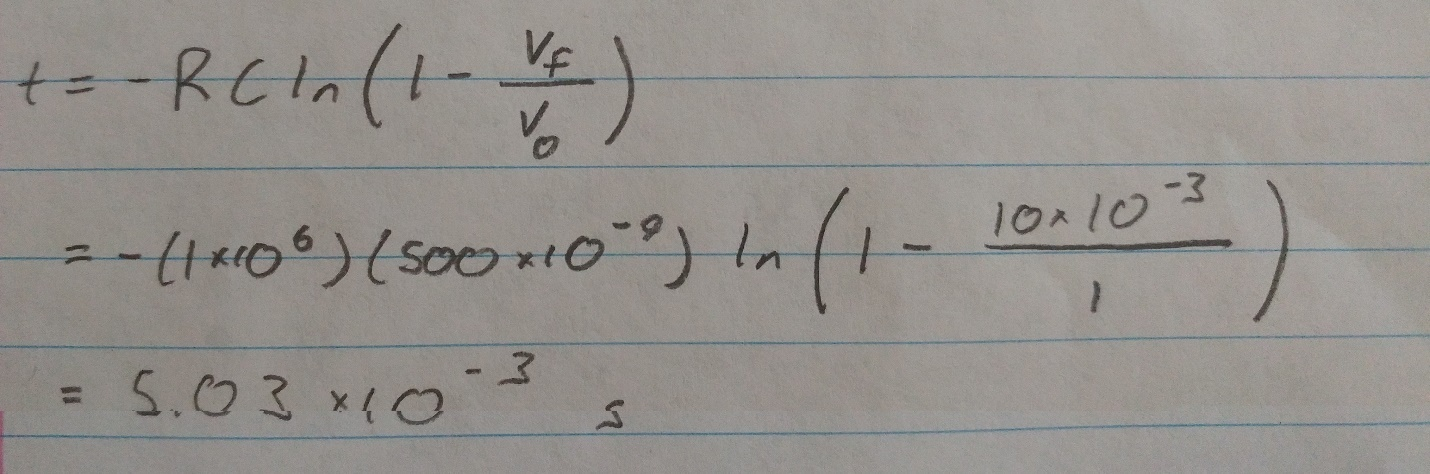 t = -RC ln(1 - Vf/V0)
= -(1×10^6)(500×10^-9) ln(1 - 10×10^-3/1)
= 5.03×10^-3 s